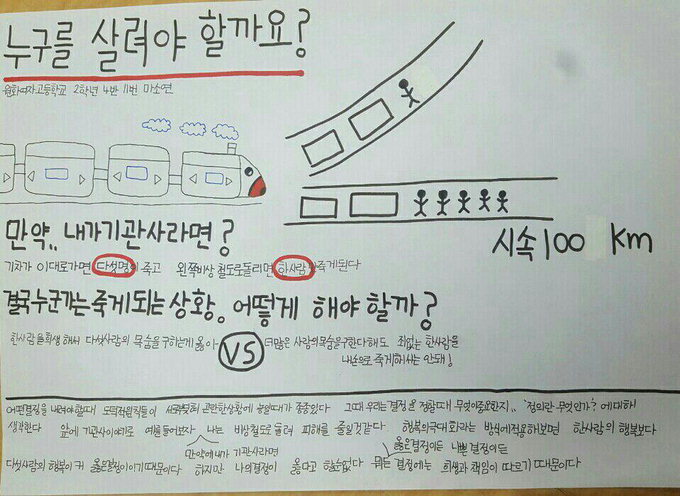 누구를 살려야 할까요?
원화여자고등학교 2학년 4반 11번 마소연
만약.. 내가기관사라면?
시속 100 km
기차가 이대로가면 다섯명이 죽고 왼쪽비상 철도로돌리면 한사람만 죽게된다
결국누군가는 죽게되는 상황. 어떻게 해야 할까?
한사람을희생 해서 다섯사람의 목숨을구하는게 옳아
VS
더많은 사람의목숨을구한다해도 죄없는 한사람을
내손으로 죽게해서는 안돼!
어떤결정을 내려야할때 도덕적원칙들이 서로맞춰 곤란한상황에 놓일때가 종종있다 그때 우리는결정을 정할때 무엇이중요한지.. '정의란 무엇인가?'에대해
생각한다 앞에 기관사이야기로 예를들어보자 나는 비상철도로 돌려 피해를 줄일것같다 행복의극대화라는 방식에적용해보면 한사람의 행복보다
만약에내가 기관사라면
옳은결정이든 나쁜 결정이든
다섯사람의 행복이 커 옳은결정이기때문이다 하지만 나의결정이 옳다고 할순없다 모든 결정에는 희생과 책임이 따르기 때문이다